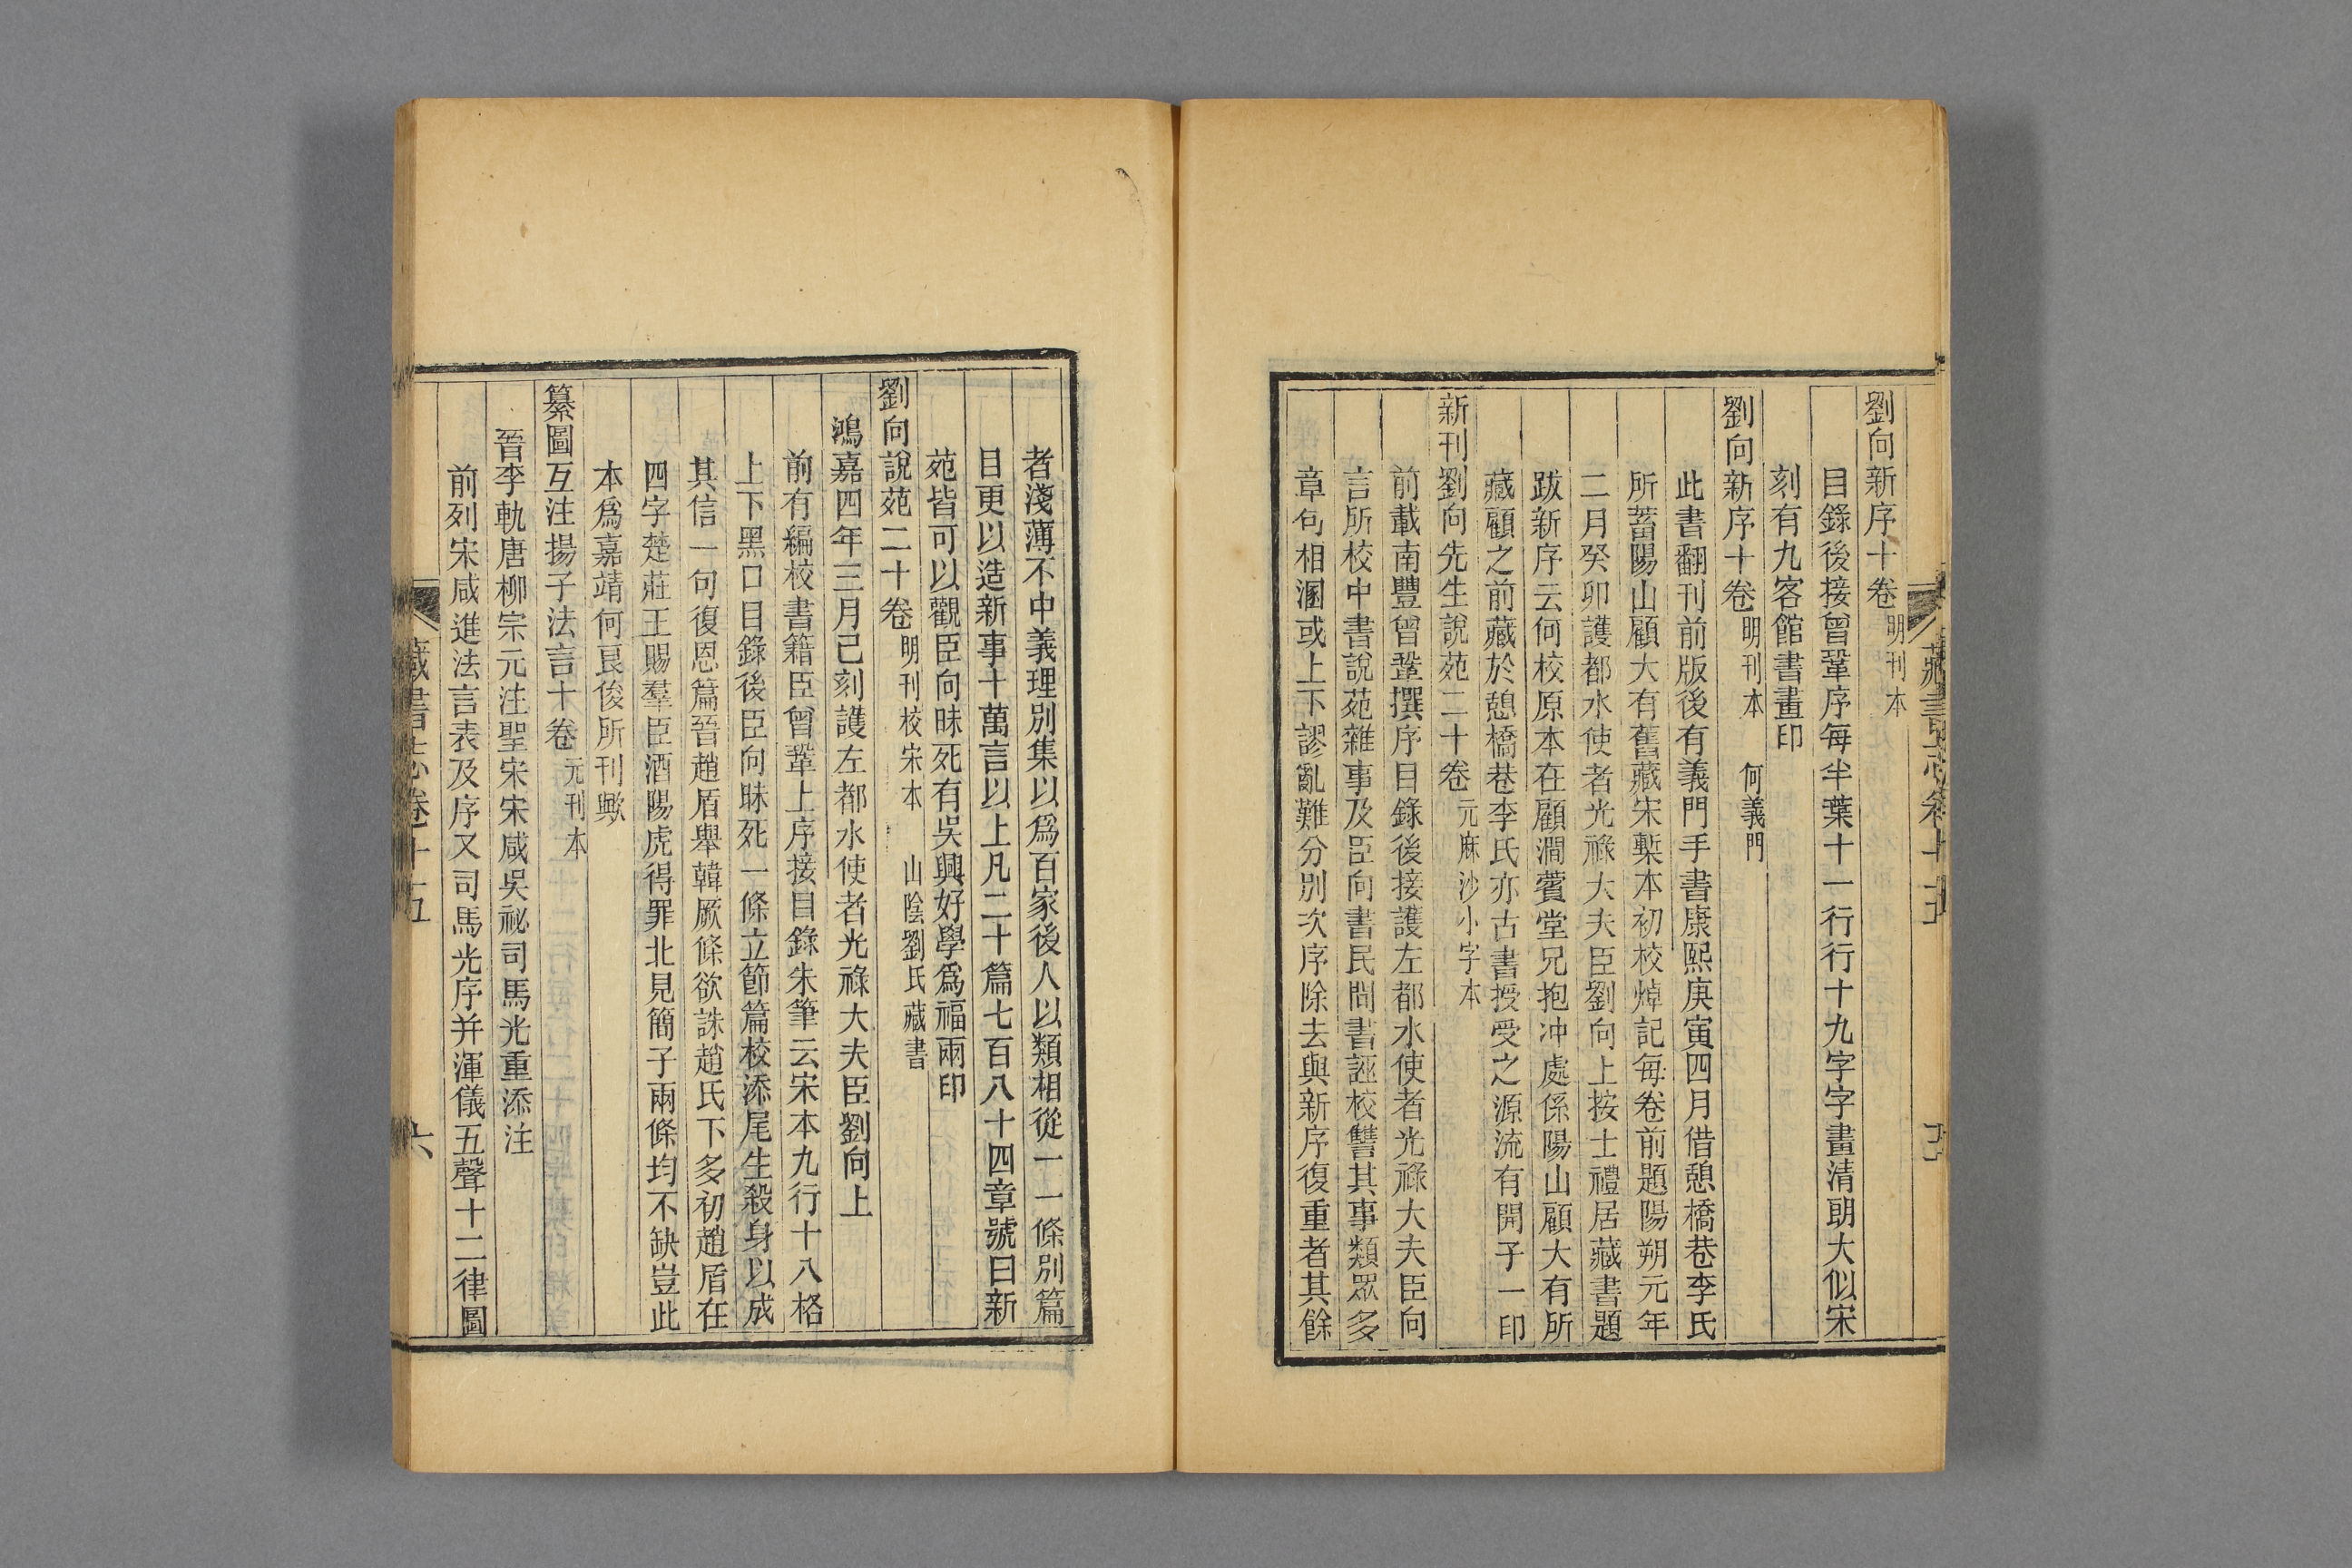 劉向新序十卷明刊本
目錄後接曾鞏序每半葉十一行行十九字字畫清朗大似宋
刻有九客館書畫印
劉向新序十卷明刊本　何義門
此書翻刊前版後有義門手書康熙庚寅四月借憩橋巷李氏
所蓄陽山顧大有舊藏宋槧本初校焯記每卷前題陽朔元年
二月癸卯護都水使者光祿大夫臣劉向上按士禮居藏書題
跋新序云何校原本在顧澗薲堂兄抱冲處係陽山顧大有所
藏顧之前藏於憩橋巷李氏亦古書授受之源流有開子一印
新刊劉向先生說苑二十卷元麻沙小字本
前載南豐曾鞏撰序目錄後接護左都水使者光祿大夫臣向
言所校中書說苑雜事及臣向書民間書誣校讐其事類眾多
章句相溷或上下謬亂難分別次序除去與新序復重者其餘
者淺薄不中義理別集以爲百家後人以類相從一一條別篇
目更以造新事十萬言以上凡二十篇七百八十四章號曰新
苑皆可以觀臣向昧死有吳興好學爲福兩印
劉向說苑二十卷明刊校宋本　山陰劉氏藏書
鴻嘉四年三月己刻護左都水使者光祿大夫臣劉向上
前有編校書籍臣曾鞏上序接目錄朱筆云宋本九行十八格
上下黑口目錄後臣向昧死一條立節篇校添尾生殺身以成
其信一句復恩篇晉趙盾舉韓厥條欲誅趙氏下多初趙盾在
四字楚莊王賜羣臣酒陽虎得罪北見簡子兩條均不缺豈此
本爲嘉靖何良俊所刊歟
纂圖互注揚子法言十卷元刊本
晉李軌唐柳宗元注聖宋宋咸吳祕司馬光重添注
前列宋咸進法言表及序又司馬光序并渾儀五聲十二律圖
藏書志卷十五
六